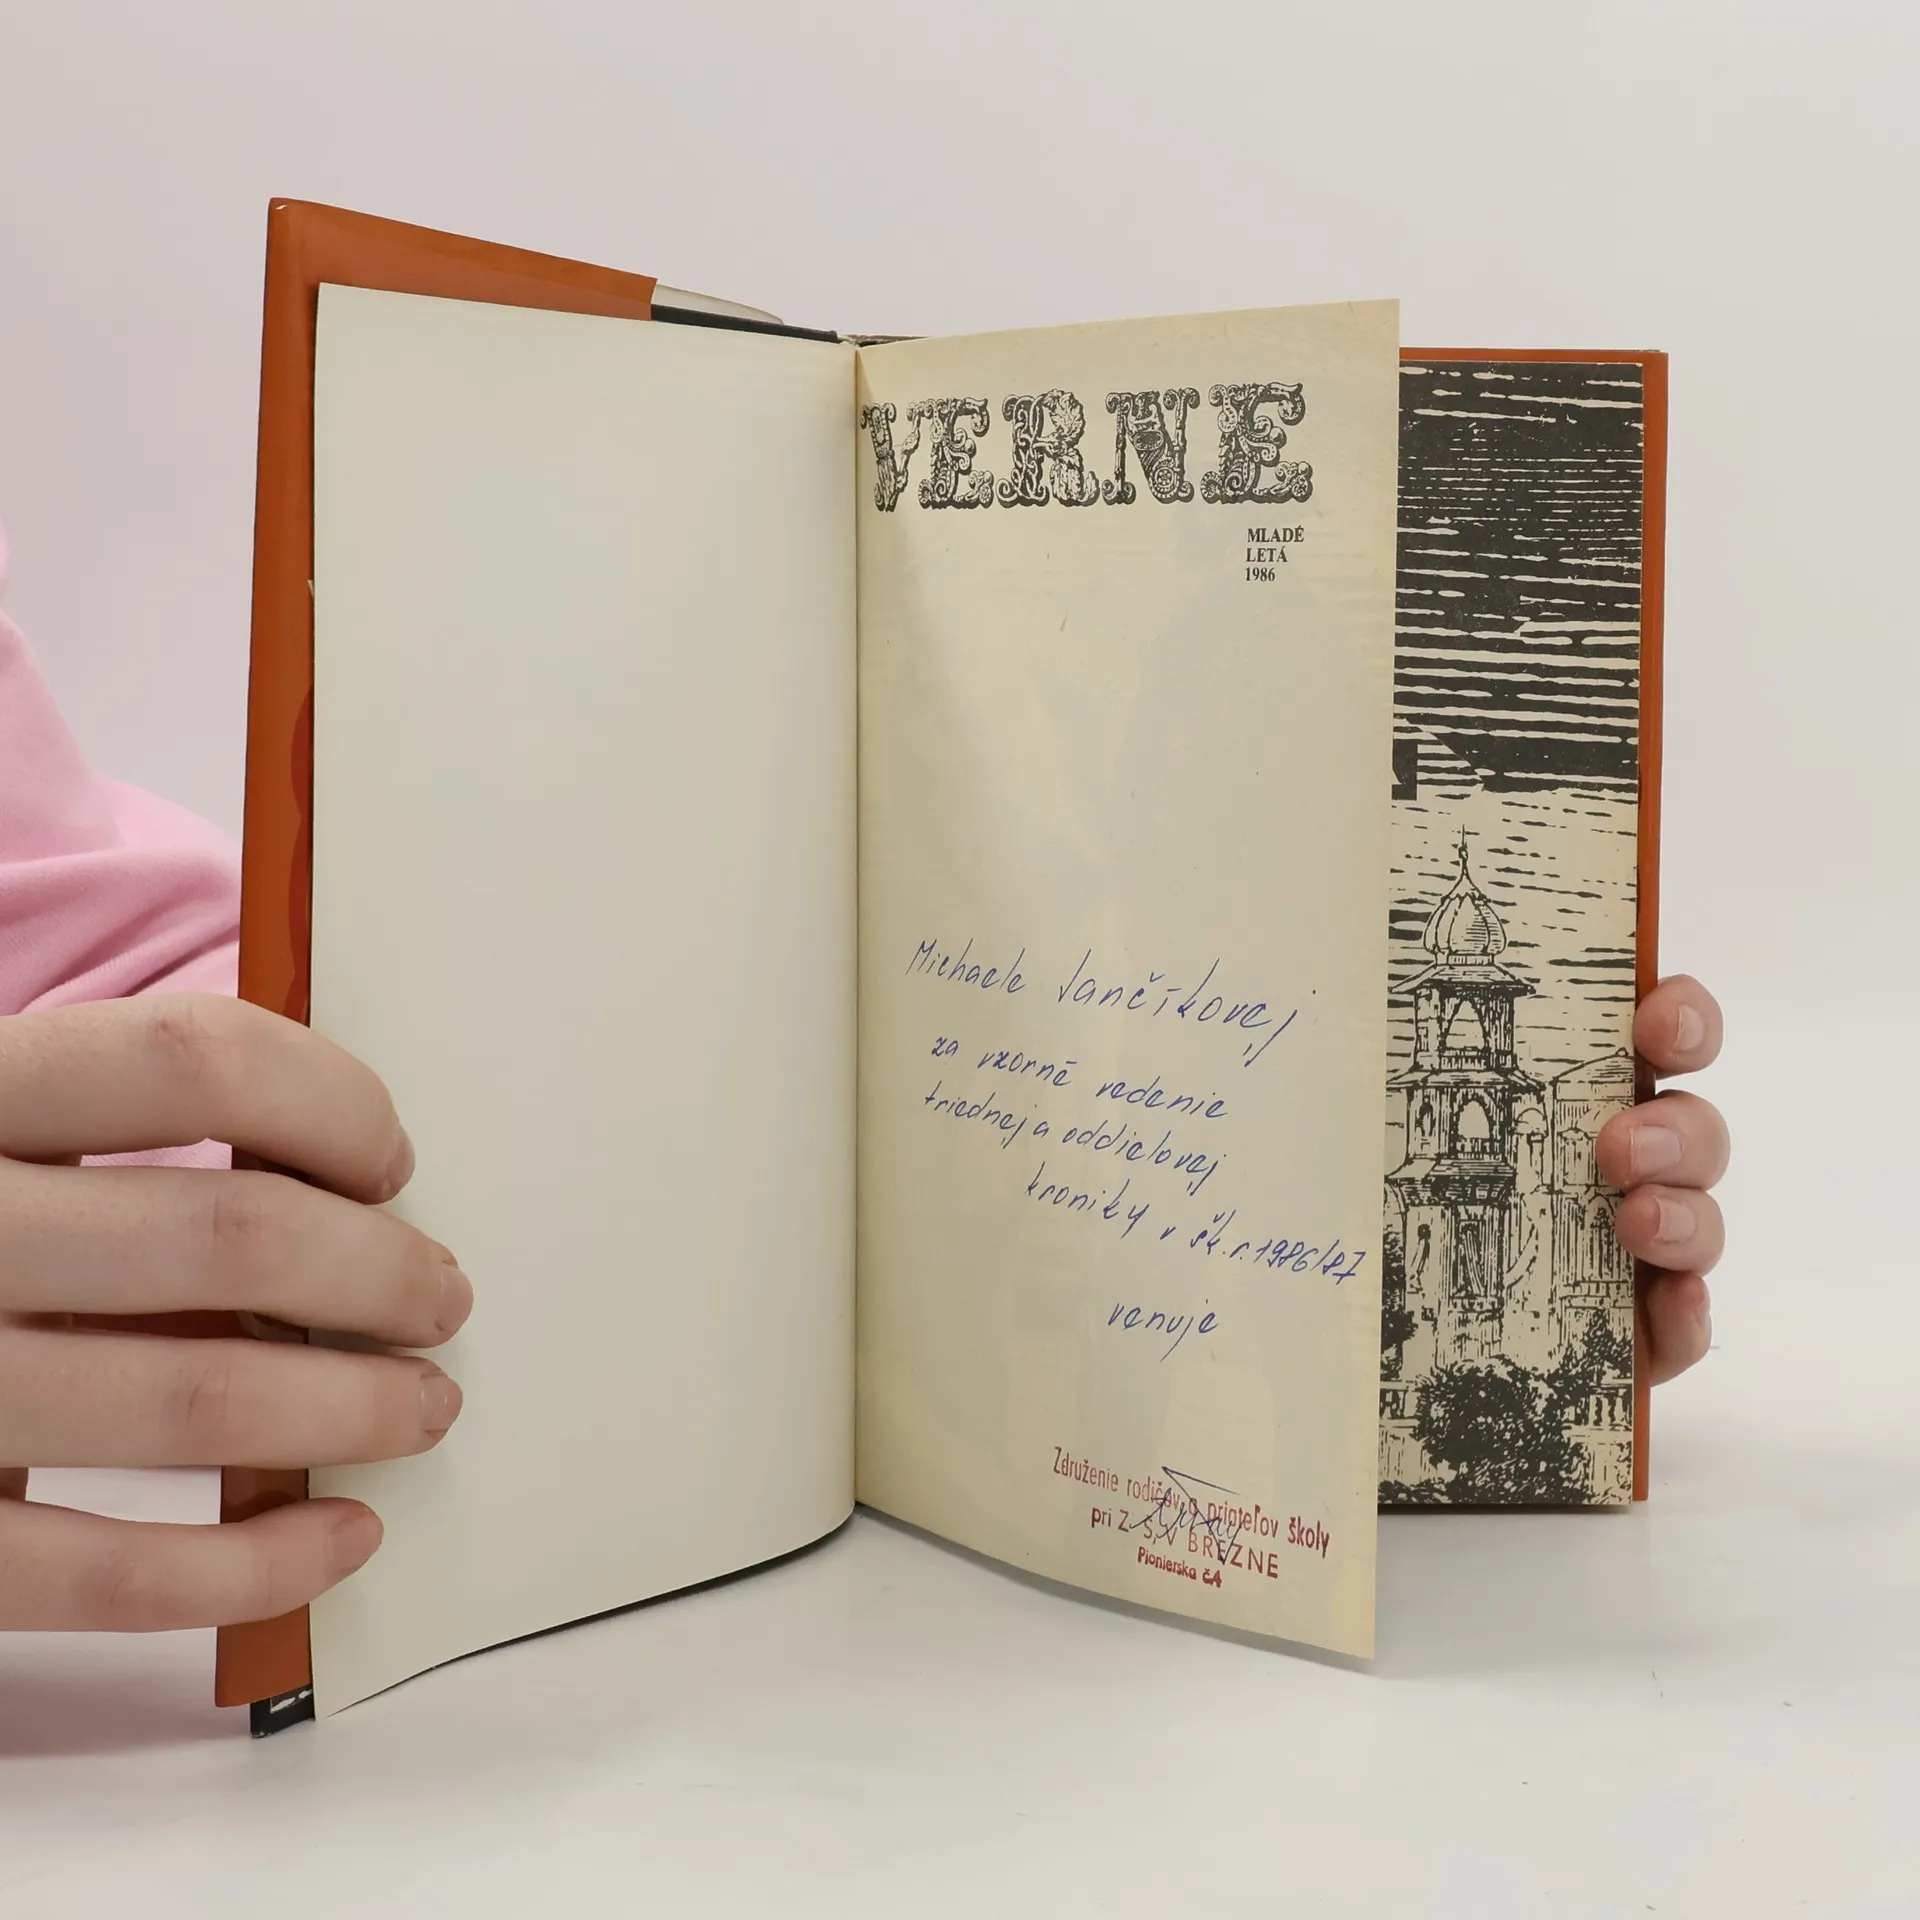 VERNE
MLADÉ
LETÁ
1986
Michaele Jančíkovej
za vzorné vedenie
triednej a oddielovej
kroniky v šk. r. 1986/87
venuje
Združenie rodičov a priateľov školy
pri Z. Š, V BREZNE
Pionierska č.4